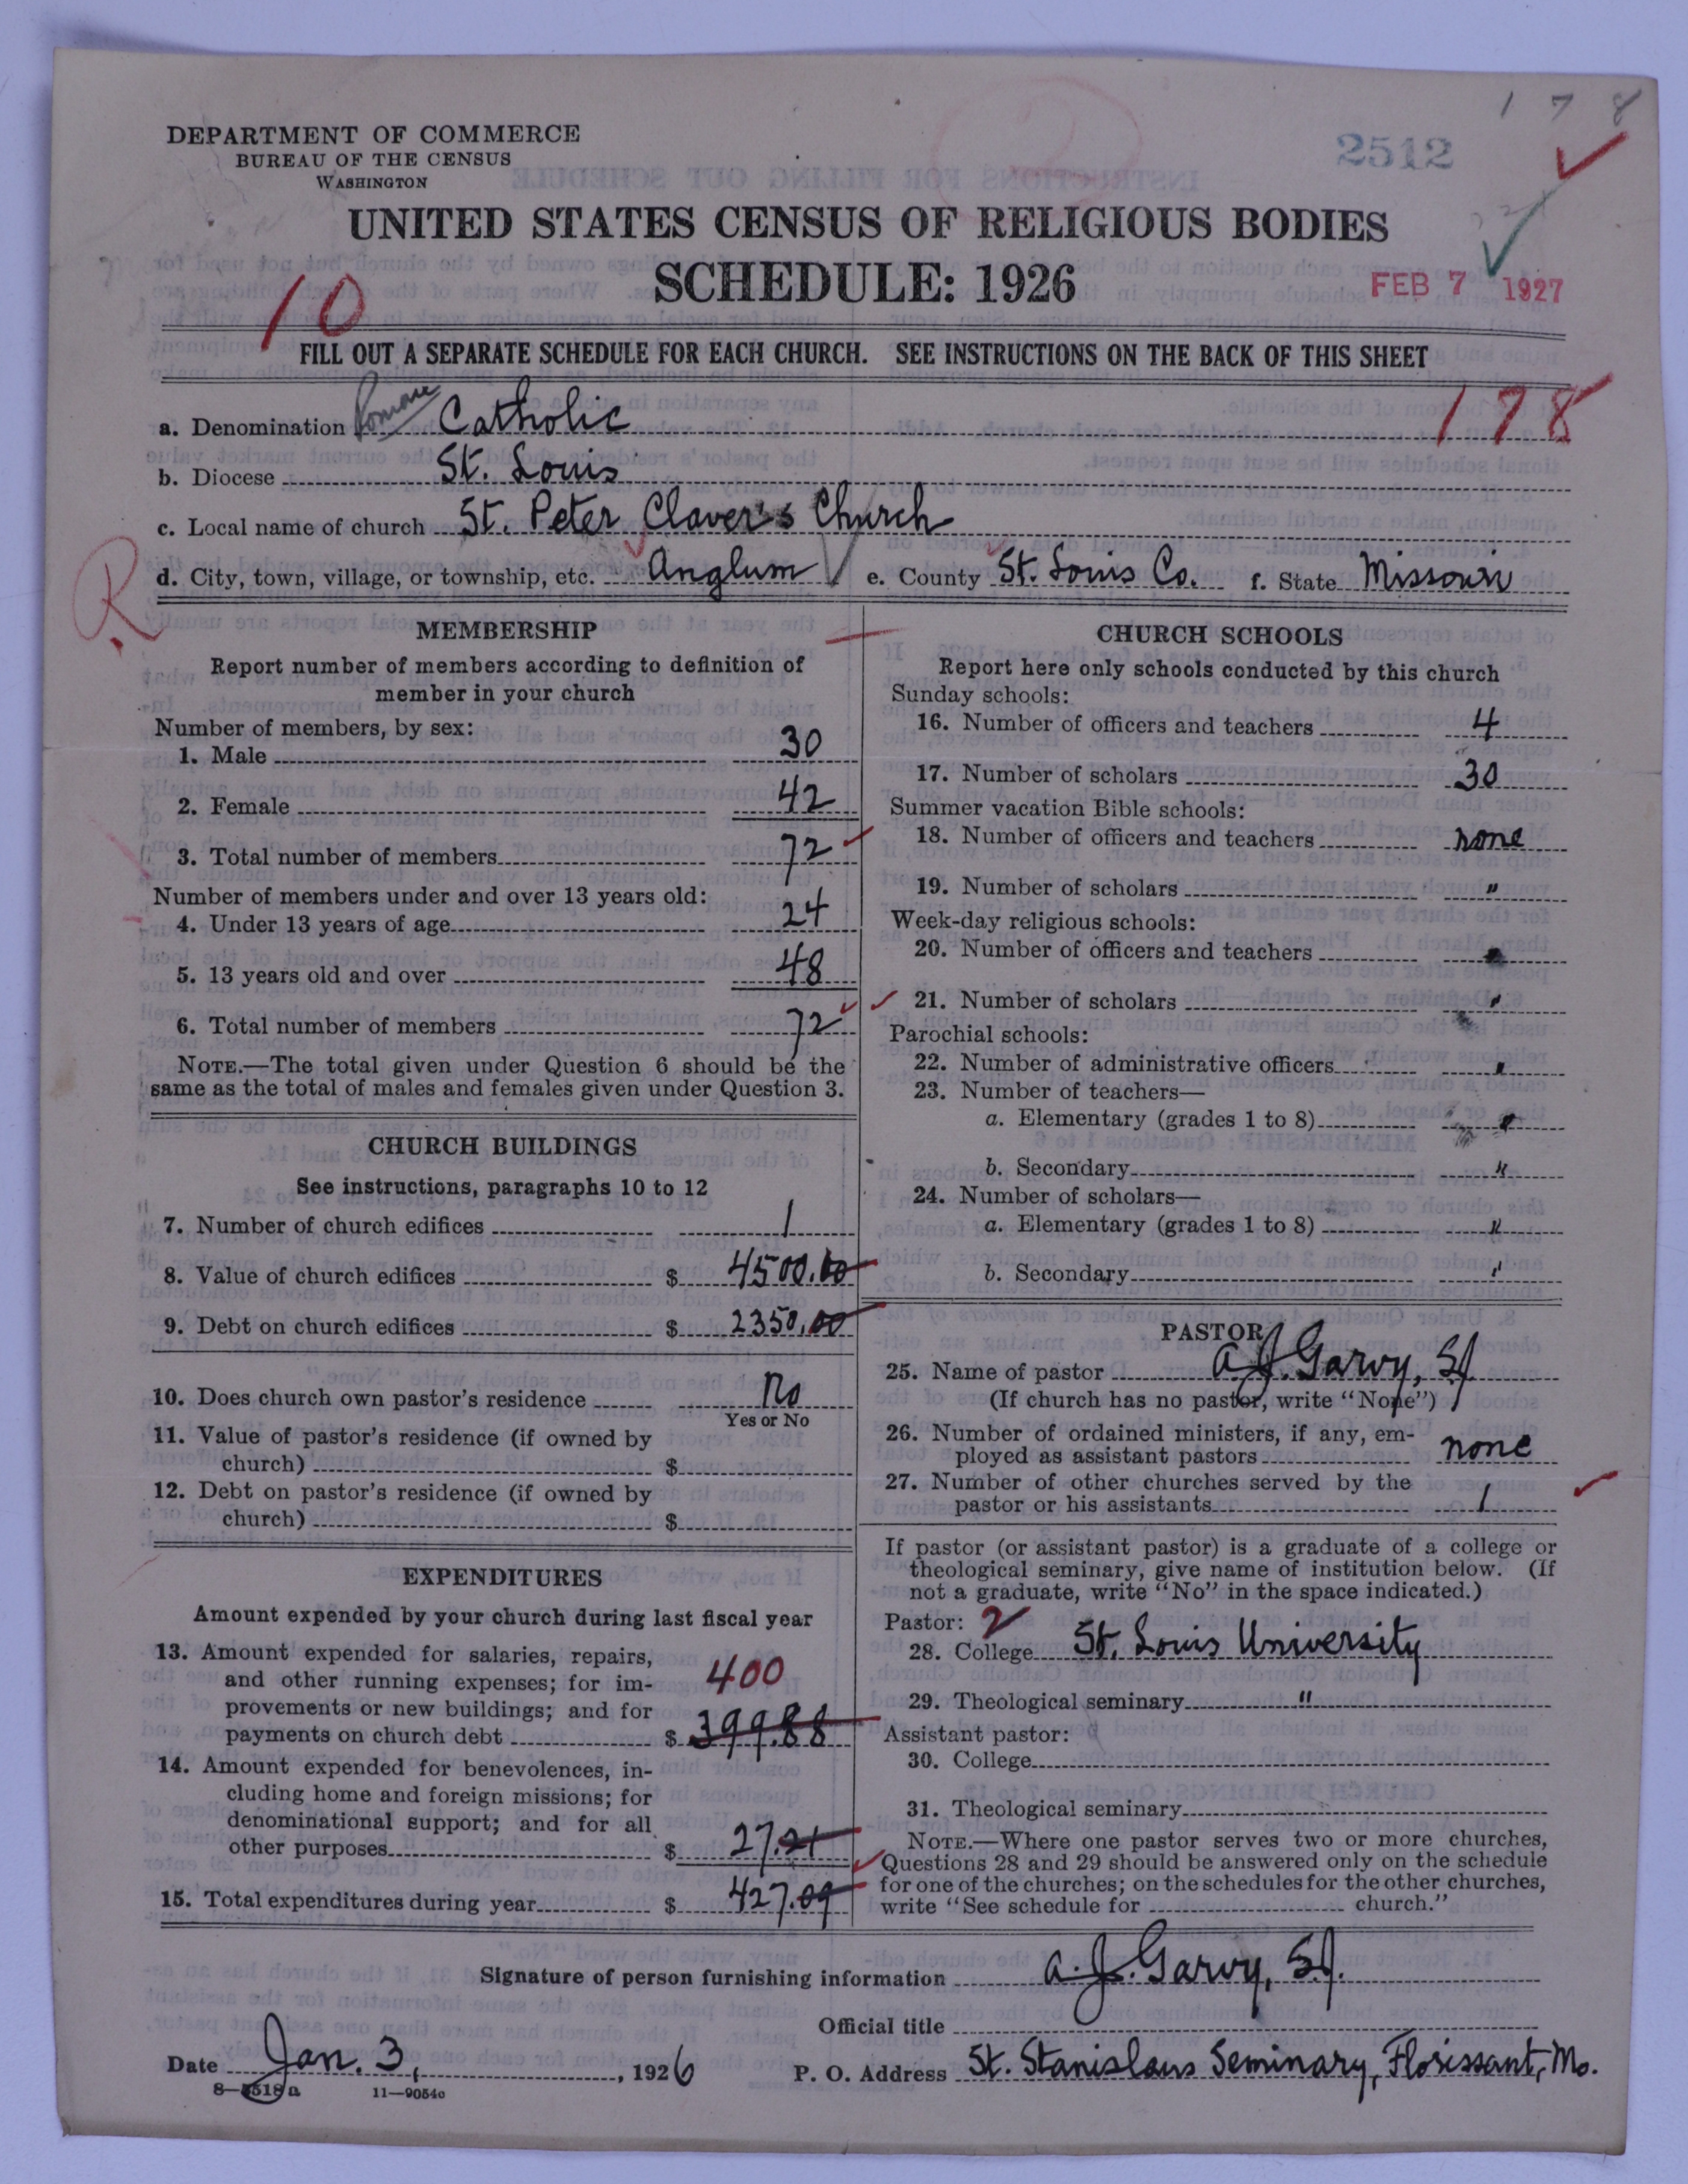 1 7 8
DEPARTMENT OF COMMERCE
BUREAU OF THE CENSUS
WASHINGTON
2512
UNITED STATES CENSUS OF RELIGIOUS BODIES
SCHEDULE: 1926
FEB 7 1927
10
FILL OUT A SEPARATE SCHEDULE FOR EACH CHURCH. SEE INSTRUCTIONS ON THE BACK OF THIS SHEET
a. Denomination Roman Catholic
178
b. Diocese St. Louis
c. Local name of church St. Peter Claver's Church
R
d. City, town, village, or township, etc. Anglum e. County St. Louis Co. f. State Missouri
MEMBERSHIP
Report number of members according to definition of
member in your church
Number of members, by sex:
1. Male 30
2. Female 42
3. Total number of members 72
Number of members under and over 13 years old:
4. Under 13 years of age 24
5. 13 years old and over 48
6. Total number of members 72
NOTE.—The total given under Question 6 should be the
same as the total of males and females given under Question 3.
CHURCH BUILDINGS
See instructions, paragraphs 10 to 12
7. Number of church edifices 1
8. Value of church edifices $ 4500.00
9. Debt on church edifices $ 2350.00
10. Does church own pastor's residence No
Yes or No
11. Value of pastor's residence (if owned by
church) $
12. Debt on pastor's residence (if owned by
church) $
EXPENDITURES
Amount expended by your church during last fiscal year
13. Amount expended for salaries, repairs,
and other running expenses; for im-
400
provements or new buildings; and for
payments on church debt $ 399.88
14. Amount expended for benevolences, in-
cluding home and foreign missions; for
denominational support; and for all
other purposes $ 27.21
15. Total expenditures during year $ 427.09
CHURCH SCHOOLS
Report here only schools conducted by this church
Sunday schools:
16. Number of officers and teachers 4
17. Number of scholars 30
Summer vacation Bible schools:
18. Number of officers and teachers none
19. Number of scholars "
Week-day religious schools:
20. Number of officers and teachers "
21. Number of scholars "
Parochial schools:
22. Number of administrative officers "
23. Number of teachers—
a. Elementary (grades 1 to 8) "
b. Secondary "
24. Number of scholars—
a. Elementary (grades 1 to 8) "
b. Secondary "
PASTOR
25. Name of pastor A. J. Garvy, S.J.
(If church has no pastor, write "None")
26. Number of ordained ministers, if any, em-
ployed as assistant pastors none
27. Number of other churches served by the
pastor or his assistants 1
If pastor (or assistant pastor) is a graduate of a college or
theological seminary, give name of institution below. (If
not a graduate, write "No" in the space indicated.)
Pastor: 2
28. College St. Louis University
29. Theological seminary "
Assistant pastor:
30. College
31. Theological seminary
NOTE.—Where one pastor serves two or more churches,
Questions 28 and 29 should be answered only on the schedule
for one of the churches; on the schedules for the other churches,
write "See schedule for church."
Signature of person furnishing information A. J. Garvy, S.J.
Official title
Date Jan. 3, 1926 P. O. Address St. Stanislaus Seminary, Florissant, Mo.
8—5518 a 11—9054o